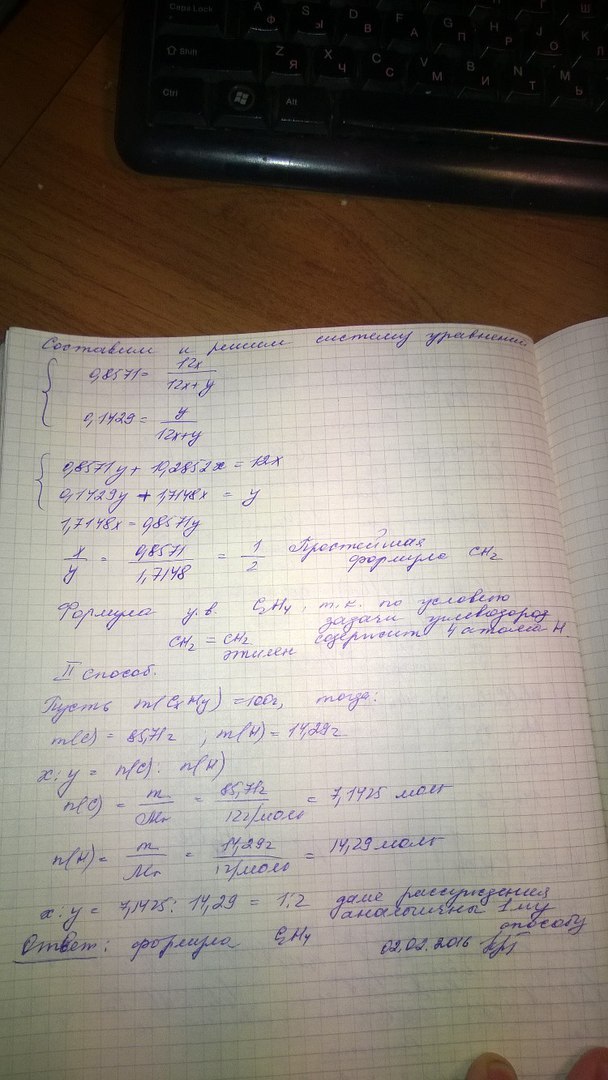 Caps Lock A Ф S Ы D В F А G П H Р J О K
Shift Z Я X Ч C С V М B И N Т M Ь
Ctrl Alt
Составим и решим систему уравнений
0,8571 = 12x / 12x+y
0,1429 = y / 12x+y
0,8571y + 10,2852x = 12x
0,1429y + 1,7148x = y
1,7148x = 0,8571y
x/y = 0,8571/1,7148 = 1/2 Простейшая формула CH2
Формула у.в. C2H4, т.к. по условию
задачи углеводород
CH2 = CH2 содержит 4 атома H
этилен
II способ.
Пусть m(CxHy) = 100г, тогда:
m(C) = 85,71г , m(H) = 14,29г
x:y = n(C) : n(H)
n(C) = m/Mr = 85,71г / 12г/моль = 7,1425 моль
n(H) = m/Mr = 14,29г / 1г/моль = 14,29 моль
x:y = 7,1425 : 14,29 = 1:2 далее рассуждения
аналогичны 1му
способу
Ответ: формула C2H4 02.02.2016